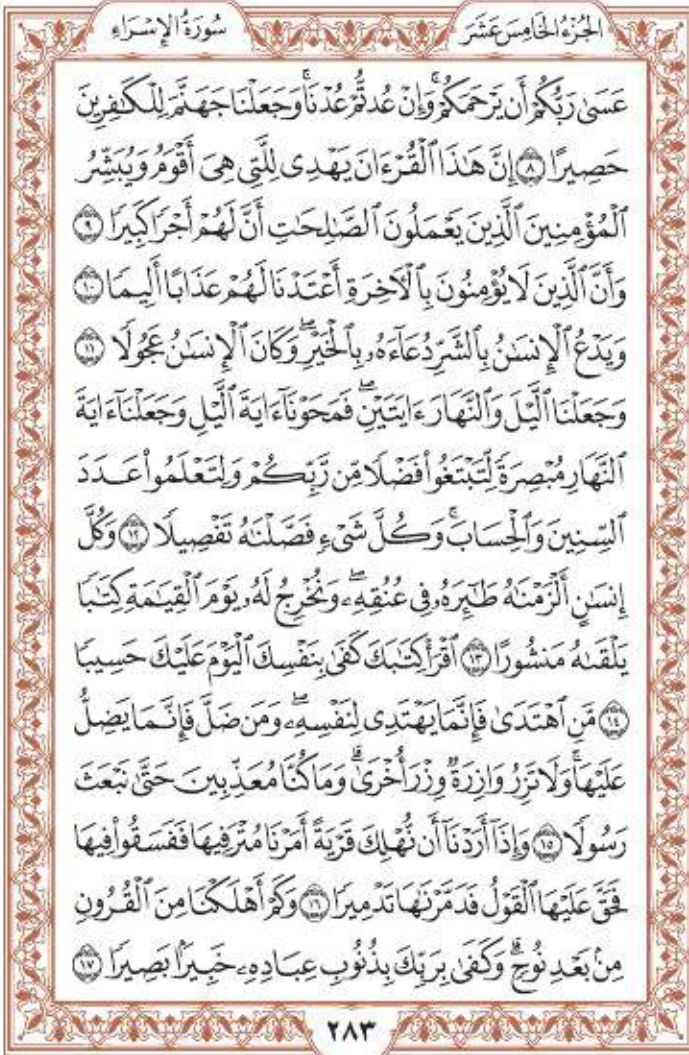 الجُزْءُ الخَامِسَ عَشَرَ سُورَةُ الإِسْرَاءِ
عَسَىٰ رَبُّكُمْ أَن يَرْحَمَكُمْۚ وَإِنْ عُدتُّمْ عُدْنَاۚ وَجَعَلْنَا جَهَنَّمَ لِلْكَٰفِرِينَ
حَصِيرًا ٨ إِنَّ هَٰذَا ٱلْقُرْءَانَ يَهْدِى لِلَّتِى هِىَ أَقْوَمُ وَيُبَشِّرُ
ٱلْمُؤْمِنِينَ ٱلَّذِينَ يَعْمَلُونَ ٱلصَّٰلِحَٰتِ أَنَّ لَهُمْ أَجْرًا كَبِيرًا ٩
وَأَنَّ ٱلَّذِينَ لَا يُؤْمِنُونَ بِٱلْأَخِرَةِ أَعْتَدْنَا لَهُمْ عَذَابًا أَلِيمًا ١٠
وَيَدْعُ ٱلْإِنسَٰنُ بِٱلشَّرِّ دُعَآءَهُۥ بِٱلْخَيْرِۖ وَكَانَ ٱلْإِنسَٰنُ عَجُولًا ١١
وَجَعَلْنَا ٱلَّيْلَ وَٱلنَّهَارَ ءَايَتَيْنِۖ فَمَحَوْنَآ ءَايَةَ ٱلَّيْلِ وَجَعَلْنَآ ءَايَةَ
ٱلنَّهَارِ مُبْصِرَةً لِّتَبْتَغُوا۟ فَضْلًا مِّن رَّبِّكُمْ وَلِتَعْلَمُوا۟ عَدَدَ
ٱلسِّنِينَ وَٱلْحِسَابَۚ وَكُلَّ شَىْءٍ فَصَّلْنَٰهُ تَفْصِيلًا ١٢ وَكُلَّ
إِنسَٰنٍ أَلْزَمْنَٰهُ طَٰٓئِرَهُۥ فِى عُنُقِهِۦۖ وَنُخْرِجُ لَهُۥ يَوْمَ ٱلْقِيَٰمَةِ كِتَٰبًا
يَلْقَىٰهُ مَنشُورًا ١٣ ٱقْرَأْ كِتَٰبَكَ كَفَىٰ بِنَفْسِكَ ٱلْيَوْمَ عَلَيْكَ حَسِيبًا
١٤ مَّنِ ٱهْتَدَىٰ فَإِنَّمَا يَهْتَدِى لِنَفْسِهِۦۖ وَمَن ضَلَّ فَإِنَّمَا يَضِلُّ
عَلَيْهَاۚ وَلَا تَزِرُ وَازِرَةٌ وِزْرَ أُخْرَىٰۗ وَمَا كُنَّا مُعَذِّبِينَ حَتَّىٰ نَبْعَثَ
رَسُولًا ١٥ وَإِذَآ أَرَدْنَآ أَن نُّهْلِكَ قَرْيَةً أَمَرْنَا مُتْرَفِيهَا فَفَسَقُوا۟ فِيهَا
فَحَقَّ عَلَيْهَا ٱلْقَوْلُ فَدَمَّرْنَٰهَا تَدْمِيرًا ١٦ وَكَمْ أَهْلَكْنَا مِنَ ٱلْقُرُونِ
مِنۢ بَعْدِ نُوحٍۗ وَكَفَىٰ بِرَبِّكَ بِذُنُوبِ عِبَادِهِۦ خَبِيرًۢا بَصِيرًا ١٧
٢٨٣